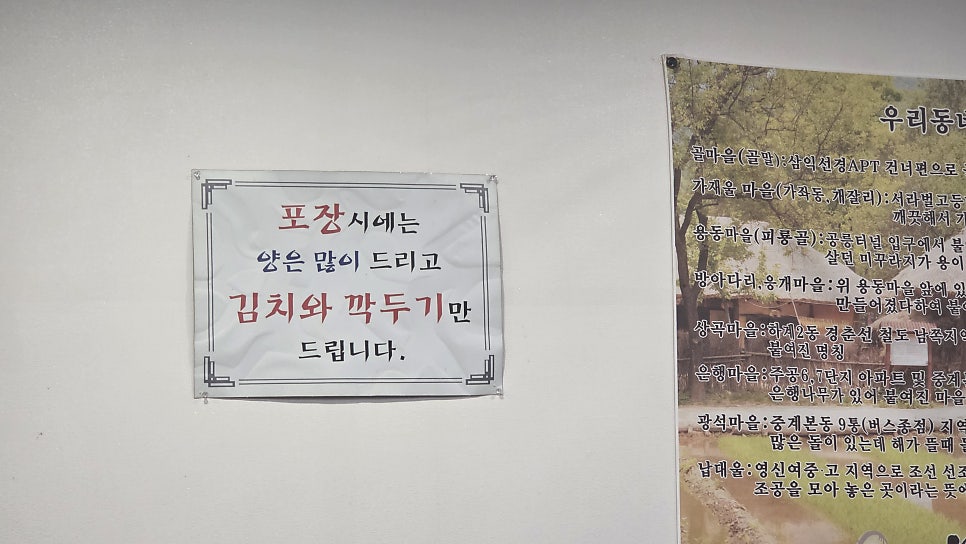 포장시에는
양은 많이 드리고
김치와 깍두기만
드립니다.
우리동네
골마을(골말):삼익선경APT 건너편으로
가재울 마을(가좌동,개잘리):서라벌고등
깨끗해서 가
용동마을(피룡골):공릉터널 입구에서 불
살던 미꾸라지가 용이
방아다리.웅개마을:위 용동마을 앞에 있
만들어졌다하여 붙여
상곡마을:하계2동 경춘선 철도 남쪽지역
붙여진 명칭
은행마을:주공6,7단지 아파트 및 중계
은행나무가 있어 붙여진 마을
광석마을:중계본동 9통(버스종점) 지역
많은 돌이 있는데 해가 뜰때
납대울:영신여중·고 지역으로 조선 선조
조공을 모아 놓은 곳이라는 뜻에